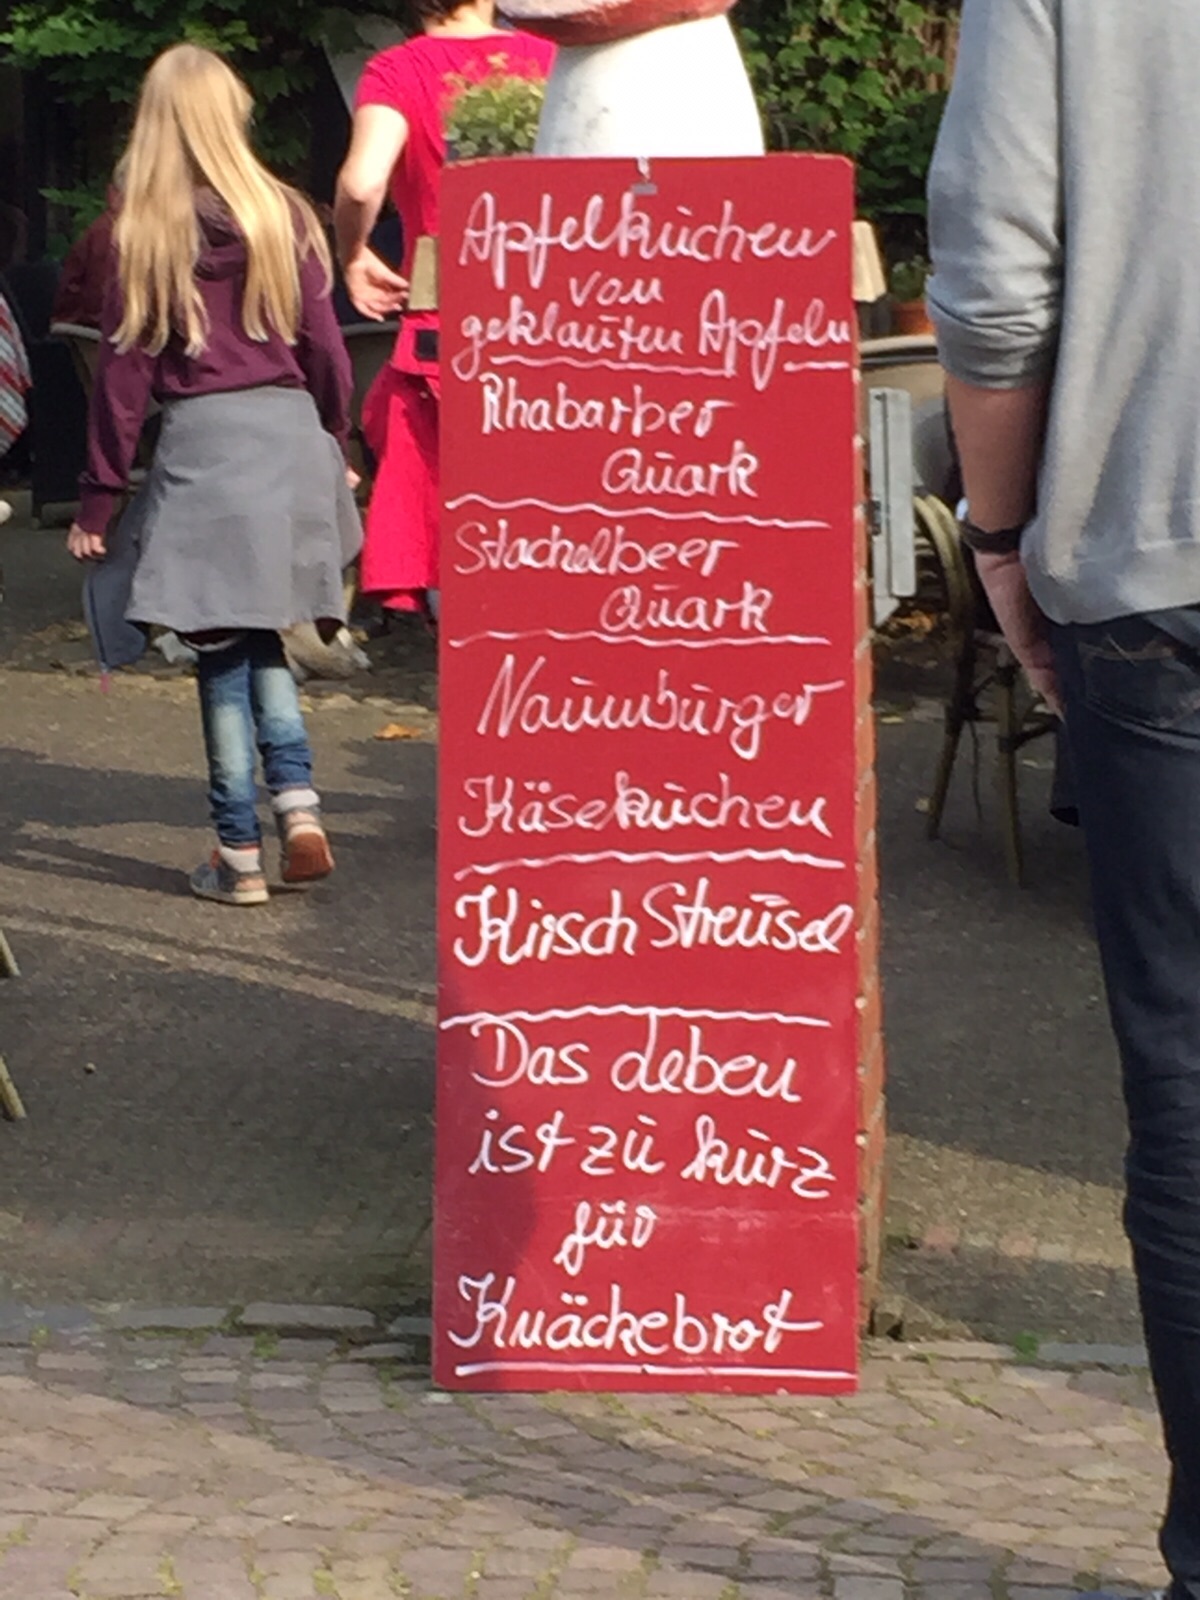 Apfelkuchen
von
geklauten Apfeln
Rhabarber
Quark
Stachelbeer
Quark
Naumburger
Käsekuchen
Kirsch Streusel
Das Leben
ist zu kurz
für
Knäckebrot